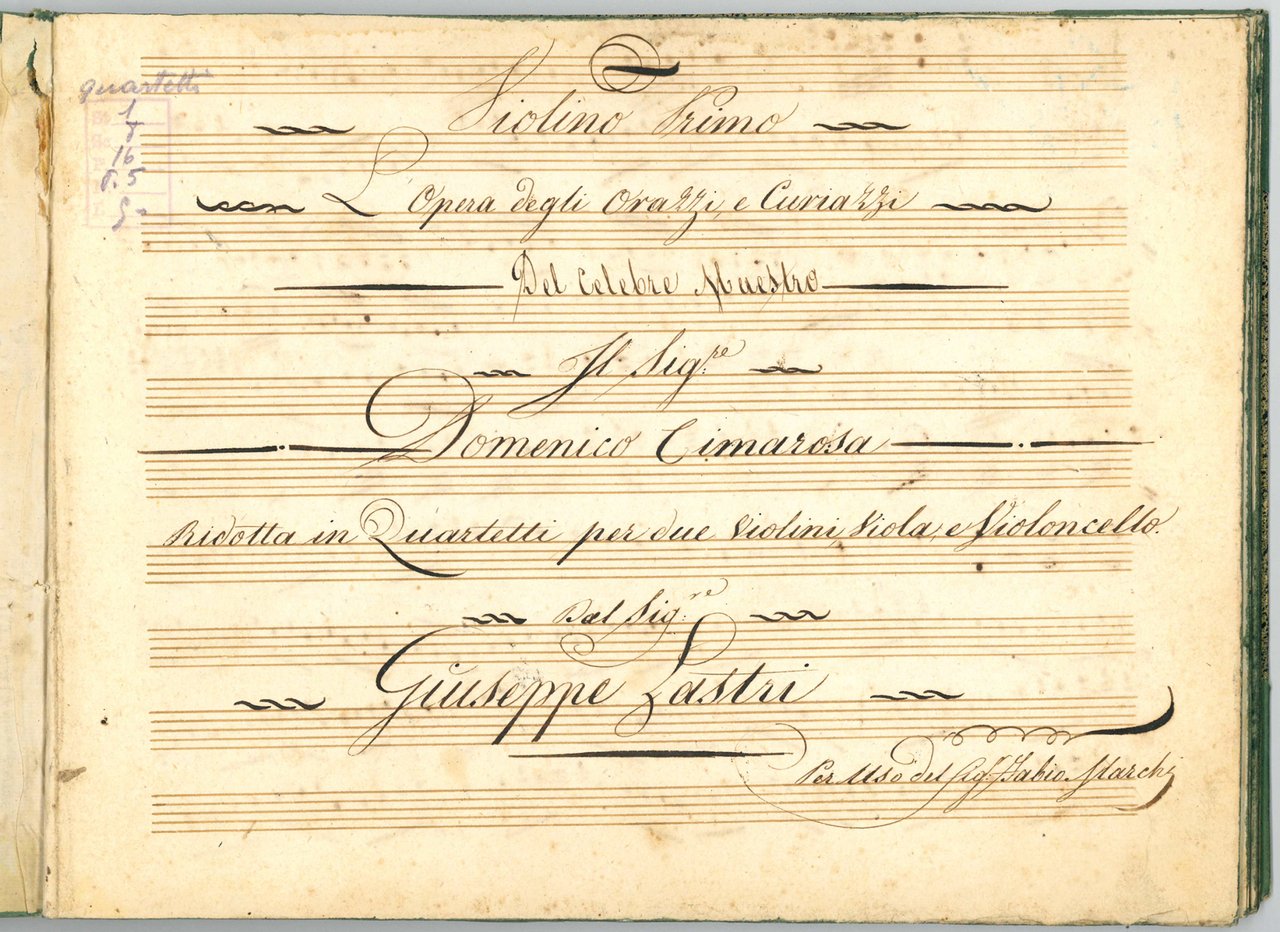 quartetti
1
16
5
Violino Primo
L'Opera degli Orazzi, e Curiazzi
Del Celebre Maestro
Il Sig.re
Domenico Cimarosa
Ridotta in Quartetti per due Violini, Viola, e Violoncello.
Dal Sig.re
Giuseppe Lastri
Per Uso del Sig. Fabio Marchi